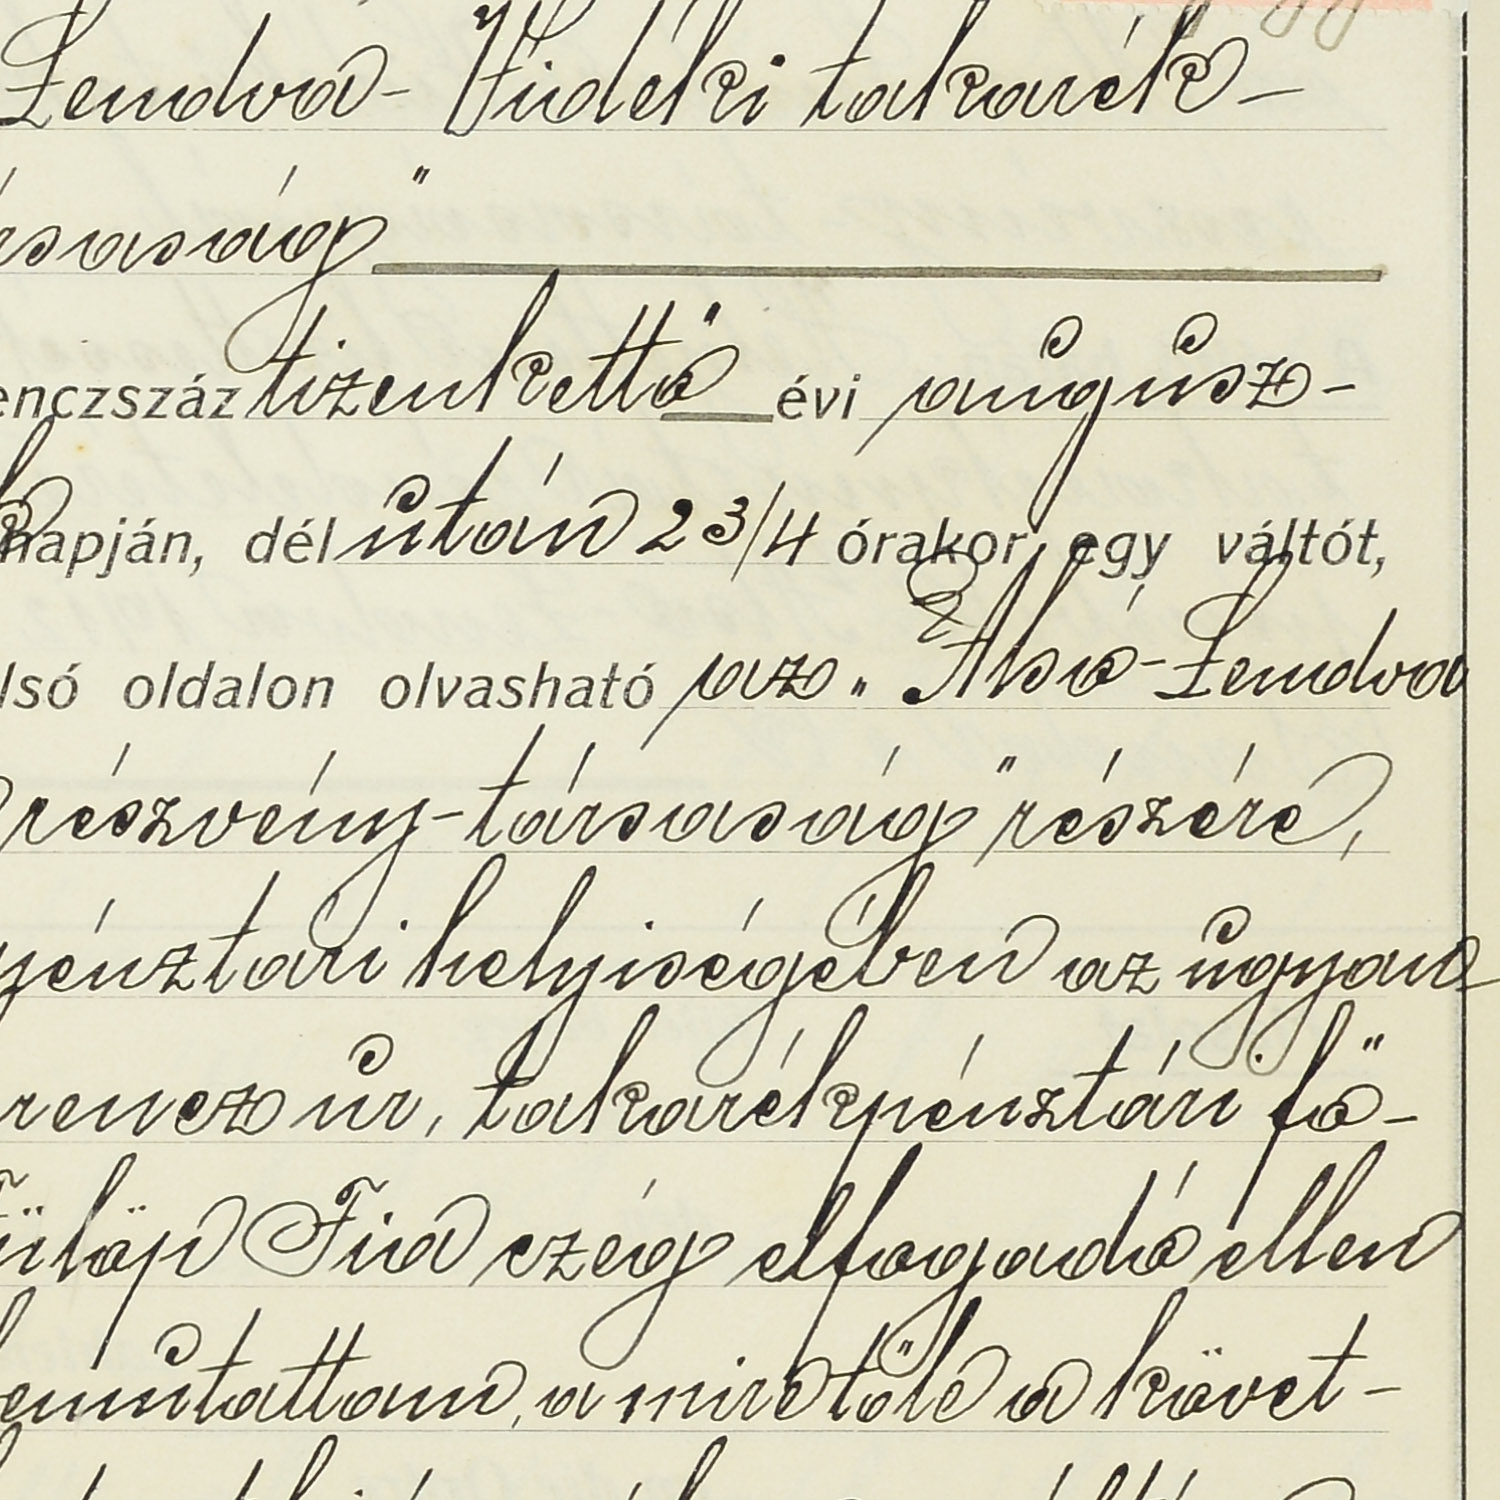 Lendva- Vidéki takarék-
rsaság"
enczszáz tizenkettő évi augusz-
napján, dél után 2 3/4 órakor egy váltót,
lső oldalon olvasható az „Alsó-Lendva
részvény-társaság" részére,
pénztári helyiségében az ugyan-
rencz úr, takarékpénztári fő-
Fülöp Fia czég elfogadó ellen
emutattam, a mire tőle a követ-